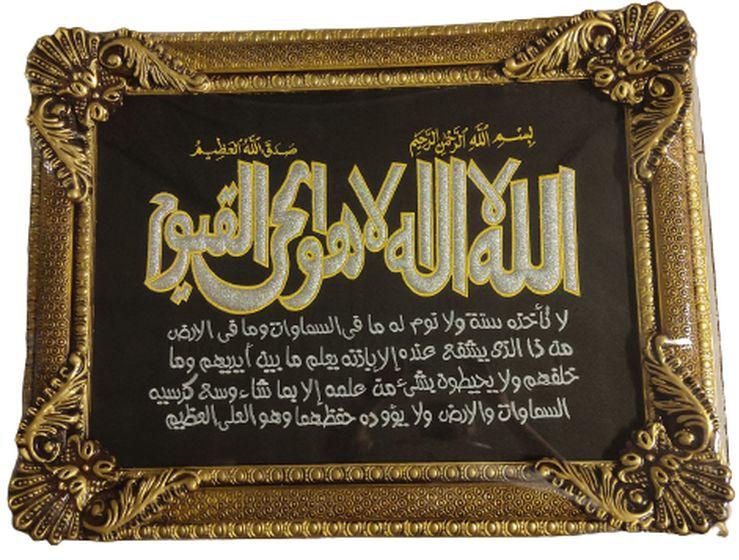 بِسْمِ اللَّهِ الرَّحْمٰنِ الرَّحِيْمِ
صَدَقَ اللَّهُ الْعَظِيْم
الله لا اله الا هو الحى القيوم
لا تأخذه سنة ولا نوم له ما فى السماوات وما فى الارض
من ذا الذى يشفع عنده إلا بإذنه يعلم ما بين أيديهم وما
خلفهم ولا يحيطون بشئ من علمه إلا بما شاء وسع كرسيه
السماوات والارض ولا يؤوده حفظهما وهو العلى العظيم